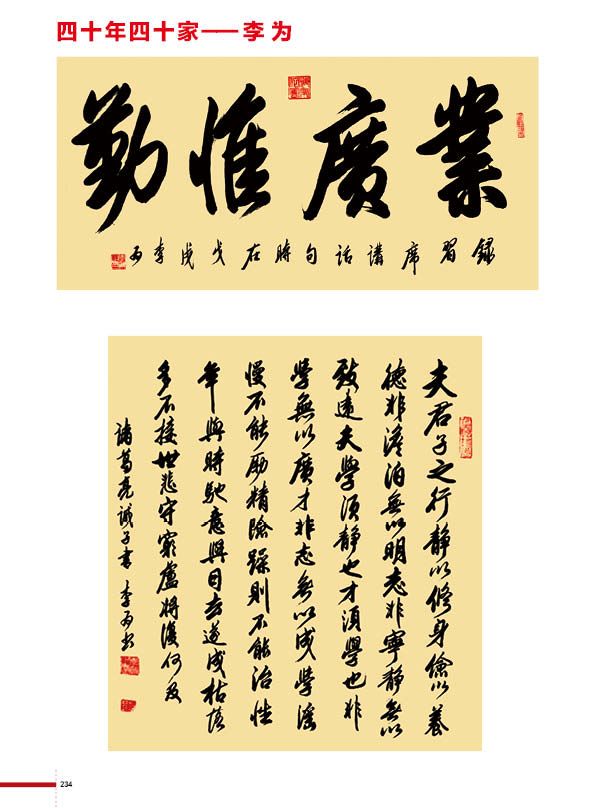 四十年四十家——李 为
業廣惟勤
錄習席講話句時在戊戌李为
夫君子之行靜以修身儉以養
德非澹泊無以明志非寧靜無以
致遠夫學須靜也才須學也非
學無以廣才非志無以成學滛
慢不能励精險躁則不能治性
年與時馳意與日去遂成枯落
多不接世悲守窮廬將復何及
諸葛亮誡子書 李为书
234